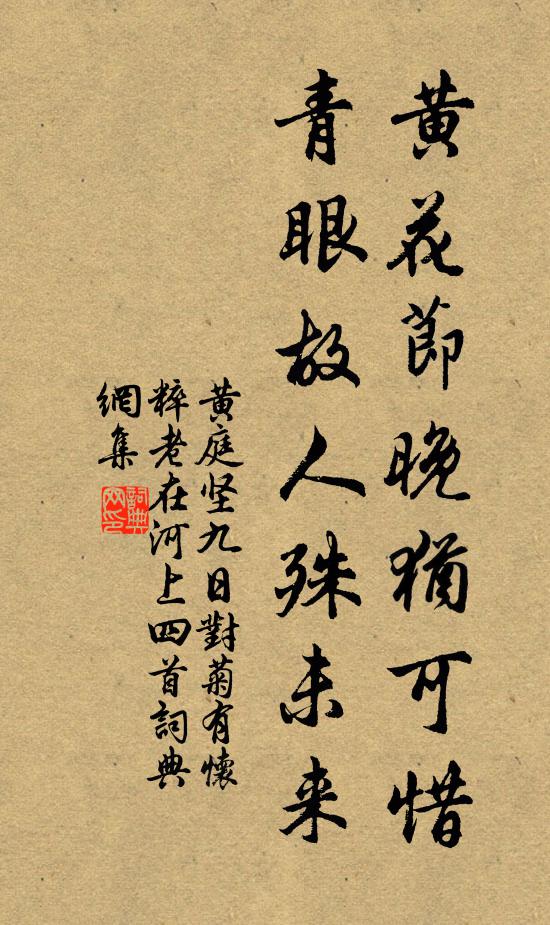 黄花節晚猶可惜
青眼故人殊未来
黄庭坚九日對菊有懷
粹老在河上四首詞典
網集
詞典
网印